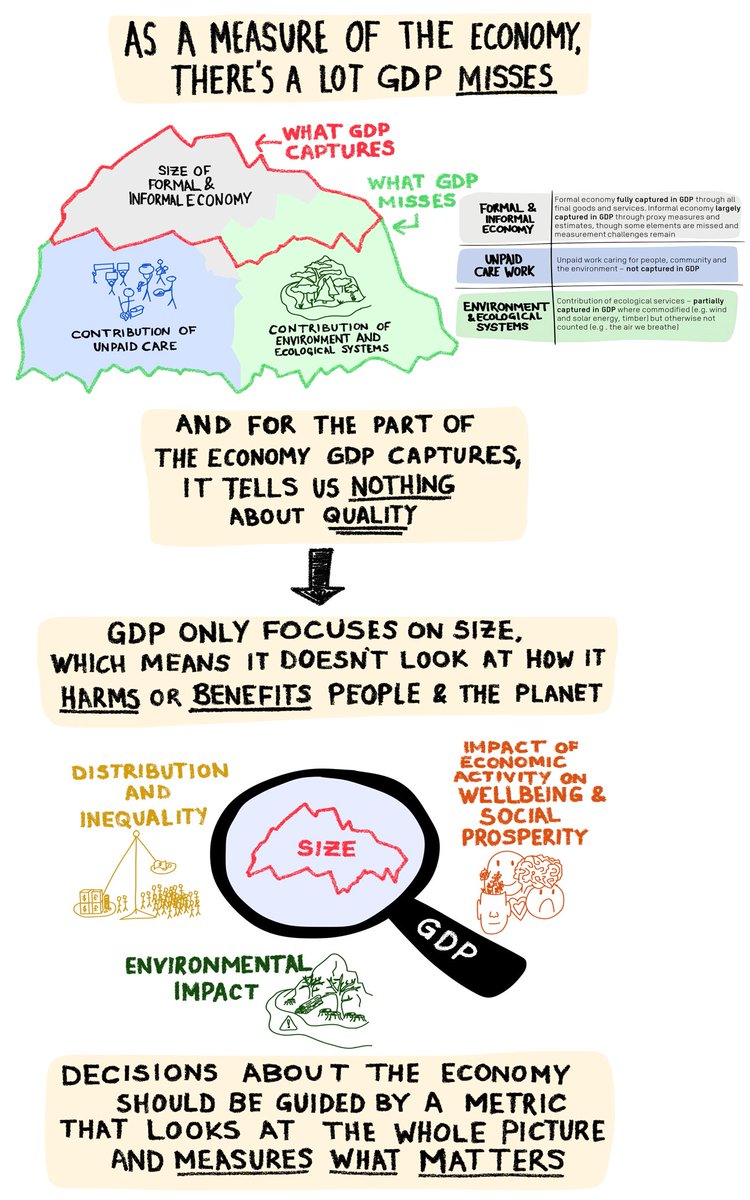 AS A MEASURE OF THE ECONOMY,
THERE'S A LOT GDP MISSES
WHAT GDP
CAPTURES
SIZE OF
FORMAL &
INFORMAL ECONOMY
WHAT GDP
MISSES
CONTRIBUTION OF
UNPAID CARE
CONTRIBUTION OF
ENVIRONMENT AND
ECOLOGICAL SYSTEMS
FORMAL &
INFORMAL
ECONOMY
Formal economy fully captured in GDP through all
final goods and services. Informal economy largely
captured in GDP through proxy measures and
estimates, though some elements are missed and
measurement challenges remain
UNPAID
CARE WORK
Unpaid work caring for people, community and
the environment – not captured in GDP
ENVIRONMENT
& ECOLOGICAL
SYSTEMS
Contribution of ecological services – partially
captured in GDP where commodified (e.g. wind
and solar energy, timber) but otherwise not
counted (e.g. the air we breathe)
AND FOR THE PART OF
THE ECONOMY GDP CAPTURES,
IT TELLS US NOTHING
ABOUT QUALITY
GDP ONLY FOCUSES ON SIZE,
WHICH MEANS IT DOESN'T LOOK AT HOW IT
HARMS OR BENEFITS PEOPLE & THE PLANET
DISTRIBUTION
AND
INEQUALITY
IMPACT OF
ECONOMIC
ACTIVITY ON
WELLBEING &
SOCIAL
PROSPERITY
SIZE
GDP
ENVIRONMENTAL
IMPACT
DECISIONS ABOUT THE ECONOMY
SHOULD BE GUIDED BY A METRIC
THAT LOOKS AT THE WHOLE PICTURE
AND MEASURES WHAT MATTERS